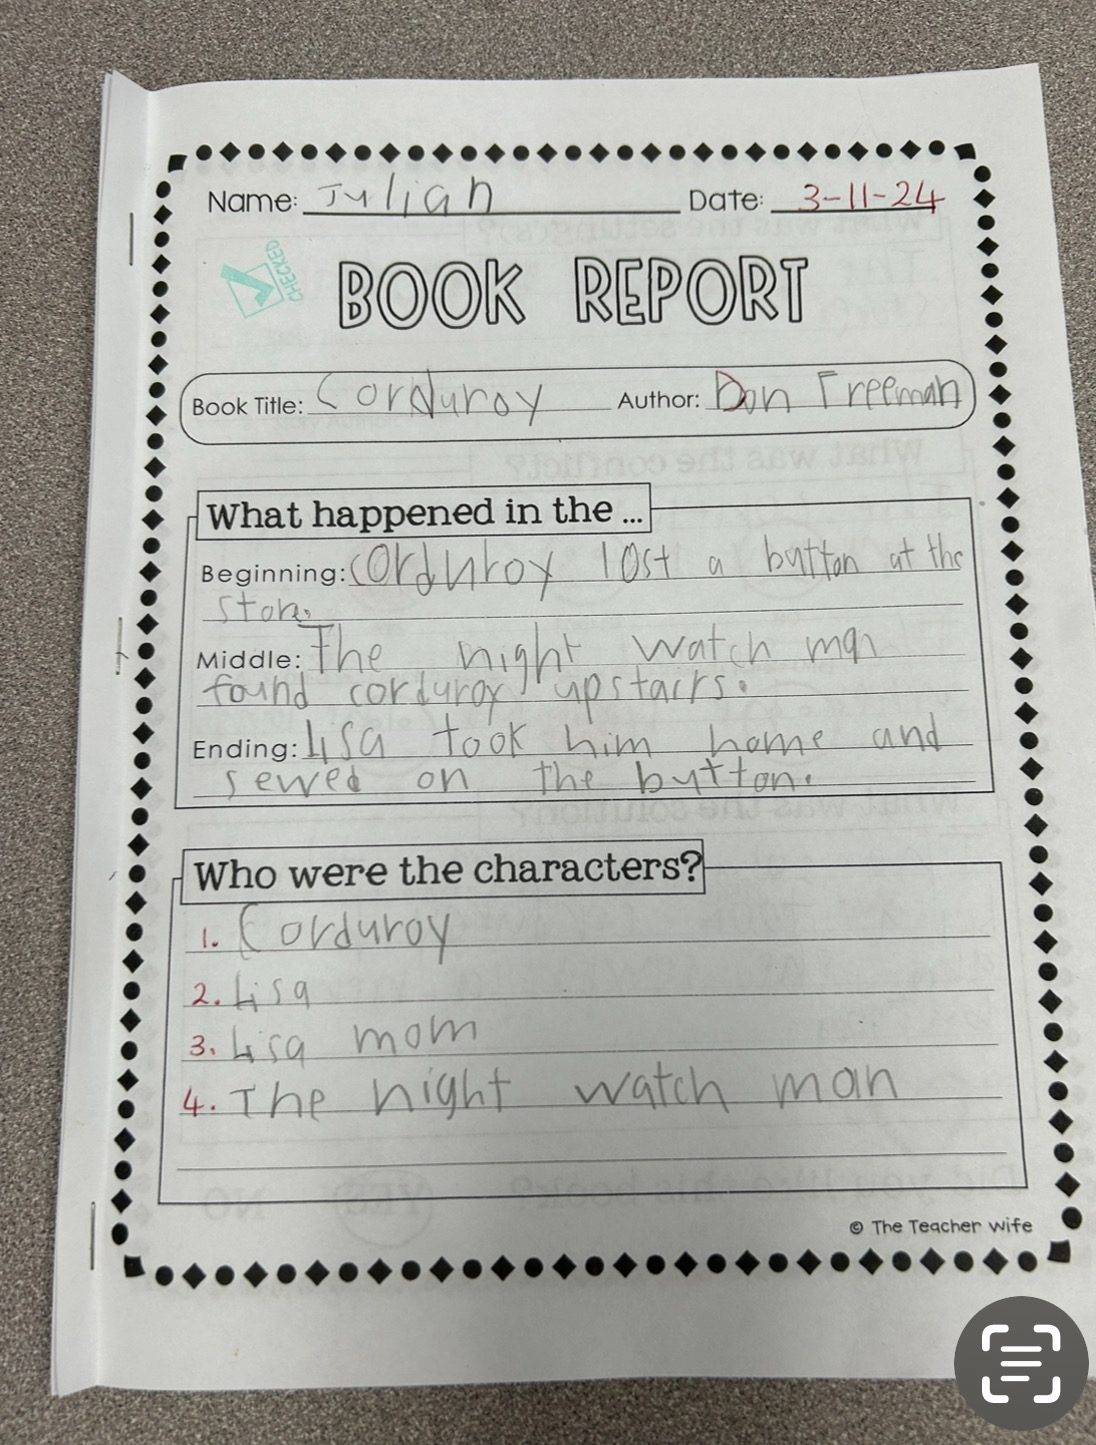 Name: Julian Date: 3-11-24
CHECKED
BOOK REPORT
Book Title: Corduroy Author: Don Freeman
What happened in the ...
Beginning: corduroy lost a button at the
store.
Middle: The night watch man
found corduroy upstairs.
Ending: Lisa took him home and
sewed on the button.
Who were the characters?
1. Corduroy
2. Lisa
3. Lisa mom
4. The night watch man
© The Teacher Wife